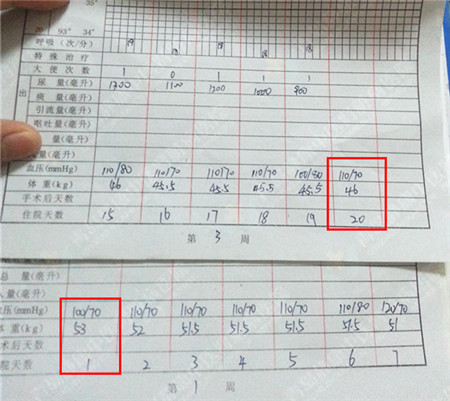 35°
93° 34°
呼吸(次/分) 19 18 18 18 18
特殊治疗
大便次数 1 0 1 1 1
出 尿 量(毫升) 1300 1100 1200 1000 900
痰 量(毫升)
引流量(毫升)
呕吐量(毫升)
量(毫升)
量(毫升)
血压(mmHg) 110/80 110/70 110/70 110/70 100/80 110/70
体 重(kg) 46 45.5 45.5 45.5 45.5 46
手术后天数
住院天数 15 16 17 18 19 20
第 3 周
总 量(毫升)
入量(毫升)
血压(mmHg) 100/70 110/70 110/70 110/70 110/70 110/80 120/70
体 重(kg) 53 52 51.5 51.5 51.5 51.5 51
术后天数
院天数 1 2 3 4 5 6 7
第 1 周